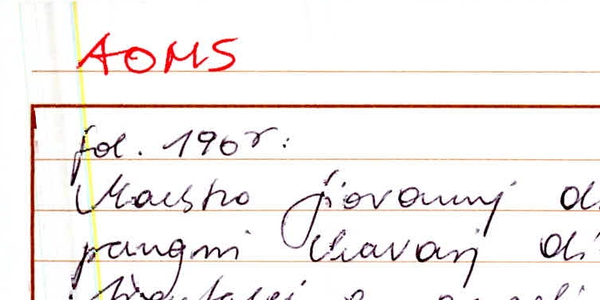 AOMS
fol. 196r:
Maestro Jiovannj d
pangni chavarj di